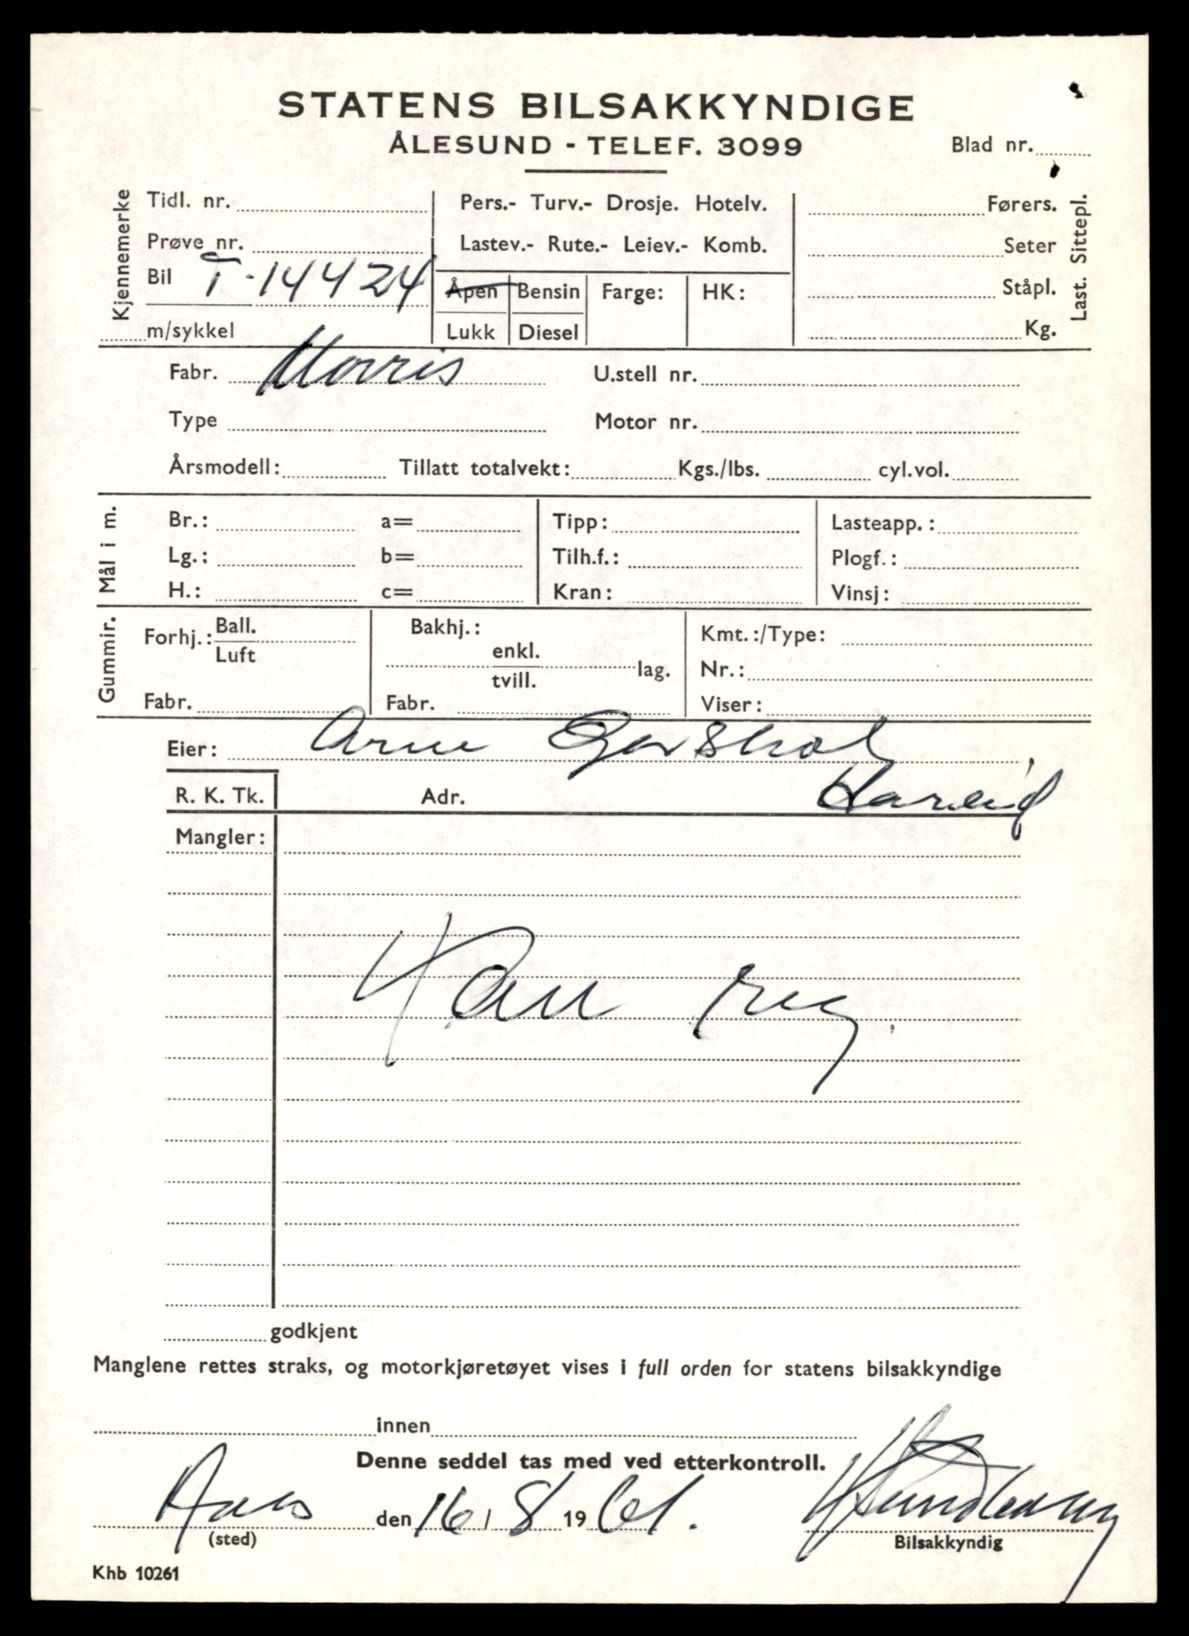 STATENS BILSAKKYNDIGE
ÅLESUND - TELEF. 3099
Blad nr.
Kjennemerke
Tidl. nr.
Prøve nr.
Bil T-14424
m/sykkel
Pers.- Turv.- Drosje. Hotelv.
Lastev.- Rute.- Leiev.- Komb.
Åpen Bensin Farge: HK:
Lukk Diesel
Førers.
Seter
Ståpl.
Kg.
Last. Sittepl.
Fabr. Morris U.stell nr.
Type Motor nr.
Årsmodell: Tillatt totalvekt: Kgs./lbs. cyl.vol.
Mål i m.
Br.: a= Tipp: Lasteapp.:
Lg.: b= Tilh.f.: Plogf.:
H.: c= Kran: Vinsj:
Gummir.
Forhj.: Ball.
Luft
Fabr.
Bakhj.:
enkl.
tvill. lag.
Fabr.
Kmt.:/Type:
Nr.:
Viser:
Eier: Arne
R. K. Tk. Adr. Hareid
Mangler:
Kan reg.
godkjent
Manglene rettes straks, og motorkjøretøyet vises i full orden for statens bilsakkyndige
innen
Denne seddel tas med ved etterkontroll.
den 16/8 1961.
(sted) Bilsakkyndig
Khb 10261